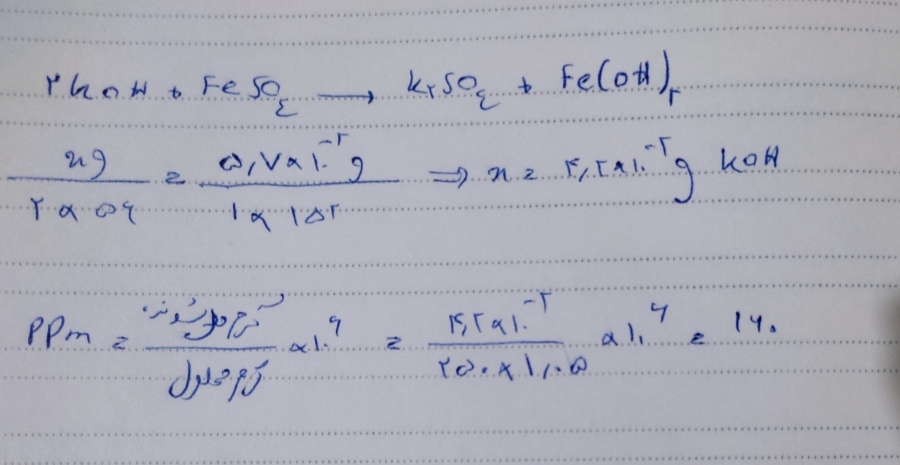 ۲KOH + FeSO۴ → K۲SO۴ + Fe(OH)۲
xg / ۲ × ۵۶ = ۵,۷ × ۱۰^-۲ g / ۱ × ۱۵۲ ⇒ x = ۴,۲ × ۱۰^-۲ g KOH
PPm = گرم حل شونده / گرم محلول × ۱۰^۶ = ۴,۲ × ۱۰^-۲ / ۲۵۰ × ۱,۰۵ × ۱۰^۶ = ۱۶۰